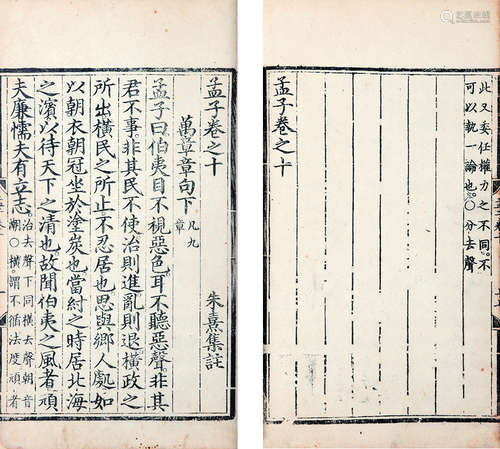 此又委任權力之不同。不
可以執一論也。○分去聲
孟子卷之十
孟子卷之十
朱熹集註
萬章章句下 凡九
章
孟子曰伯夷目不視惡色耳不聽惡聲非其
君不事非其民不使治則進亂則退橫政之
所出橫民之所止不忍居也思與鄉人處如
以朝衣朝冠坐於塗炭也當紂之時居北海
之濱以待天下之清也故聞伯夷之風者頑
夫廉懦夫有立志 治去聲下同橫去聲朝音
潮○橫謂不循法度頑者